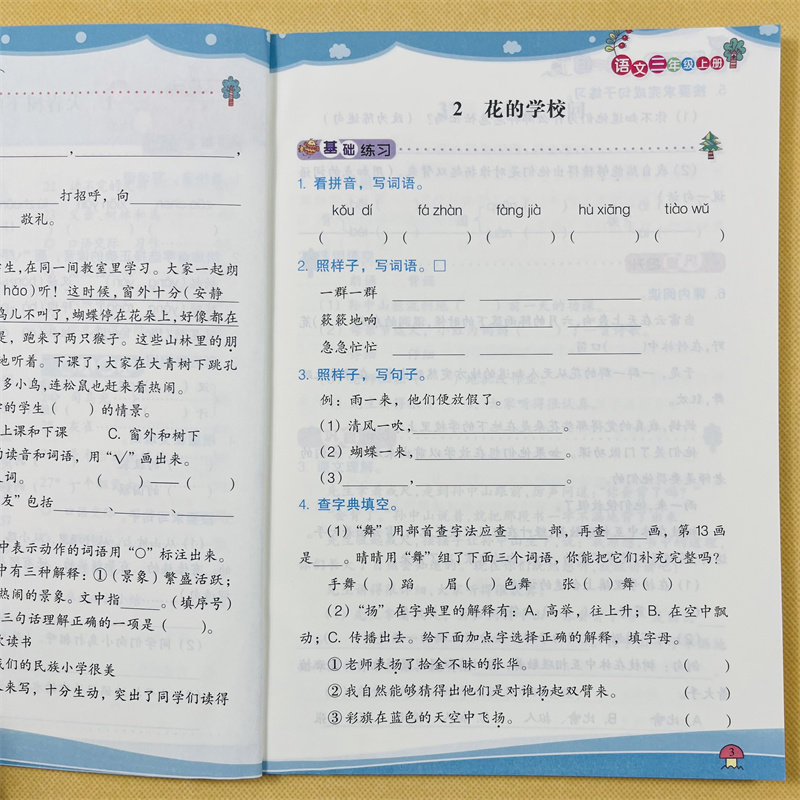 打招呼，向
敬礼。
生，在同一间教室里学习。大家一起朗
hǎo)听！这时候，窗外十分(安静
鸟儿不叫了，蝴蝶停在花朵上，好像都在
是，跑来了两只猴子。这些山林里的朋
地听着。下课了，大家在大青树下跳孔
多小鸟，连松鼠也赶来看热闹。
的学生（ ）的情景。
上课和下课 C. 窗外和树下
读音和词语，用“√”画出来。
词。（ ）——（ ）
友”包括______、______、______
中表示动作的词语用“○”标注出来。
中有三种解释：①(景象)繁盛活跃；
热闹的景象。文中指____。(填序号)
三句话理解正确的一项是（ ）。
欠读书
我们的民族小学很美
来写，十分生动，突出了同学们读得
语文三年级上册
2 花的学校
基础练习
1. 看拼音，写词语。
kǒu dí fá zhàn fàng jià hù xiāng tiào wǔ
（ ）（ ）（ ）（ ）（ ）
2. 照样子，写词语。□
一群一群 ______ ______
簌簌地响 ______ ______
急急忙忙 ______ ______
3. 照样子，写句子。
例：雨一来，他们便放假了。
(1) 清风一吹，____________。
(2) 蝴蝶一来，____________。
(3) ______，____________。
4. 查字典填空。
(1)“舞”用部首查字法应查____部，再查____画，第13画
是____。晴晴用“舞”组了下面三个词语，你能把它们补充完整吗？
手舞（ ）蹈 眉（ ）色舞 张（ ）舞（ ）
(2)“扬”在字典里的解释有：A. 高举，往上升；B. 在空中飘
动；C. 传播出去。给下面加点字选择正确的解释，填字母。
①老师表扬了拾金不昧的张华。（ ）
②我自然能够猜得出他们是对谁扬起双臂来。（ ）
③彩旗在蓝色的天空中飞扬。（ ）
3